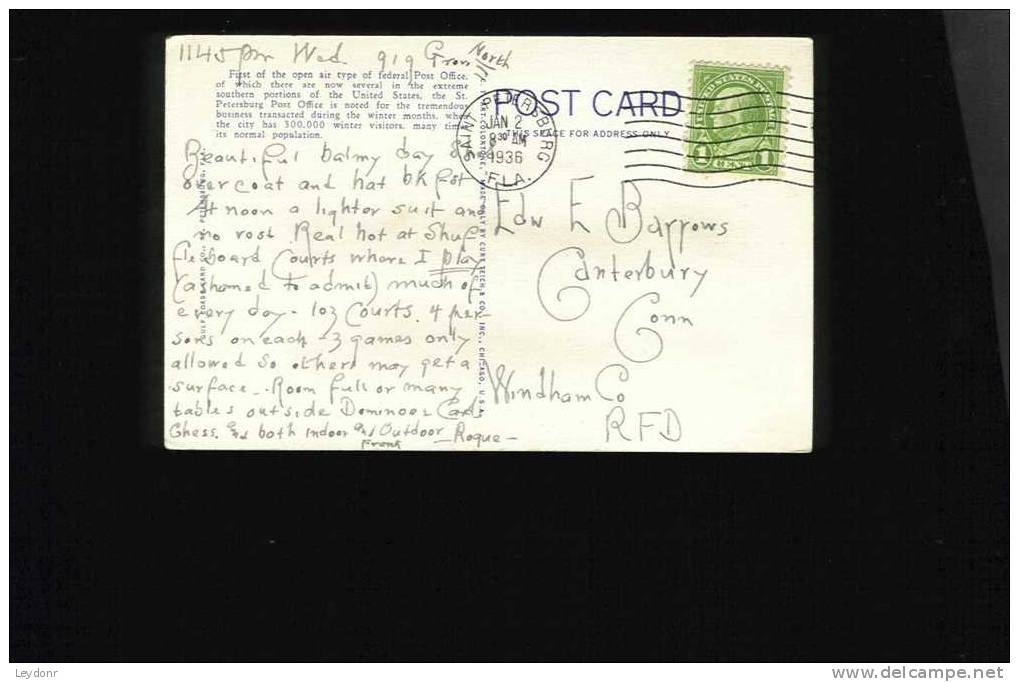 1145 pm Wed. 919
North
First of the open air type of federal Post Office,
of which there are now several in the extreme
southern portions of the United States, the St.
Petersburg Post Office is noted for the tremendous
business transacted during the winter months, when
the city has 300,000 winter visitors, many times
its normal population.
Beautiful balmy day
overcoat and hat bkfst
At noon a lighter suit and
no vest. Real hot at Shuf
fleboard Courts where I play
(ashamed to admit) much of
every day - 103 Courts. 4 per-
sons on each - 3 games only
allowed so others may get a
surface - Room full or many
tables outside Dominoes Card
Chess. and both indoor and Outdoor - Roque -
Frank
"MADE ONLY BY CURT TEICH & CO., INC., CHICAGO, U.S.A.
POST CARD
THIS SPACE FOR ADDRESS ONLY
SAINT PETERSBURG
JAN 2
8 30 AM
1936
FLA.
UNITED STATES POSTAGE
1 CENT 1
Edw E Barrows
Canterbury
Conn
Windham Co
RFD
Leydonr
http://www.delcampe.net